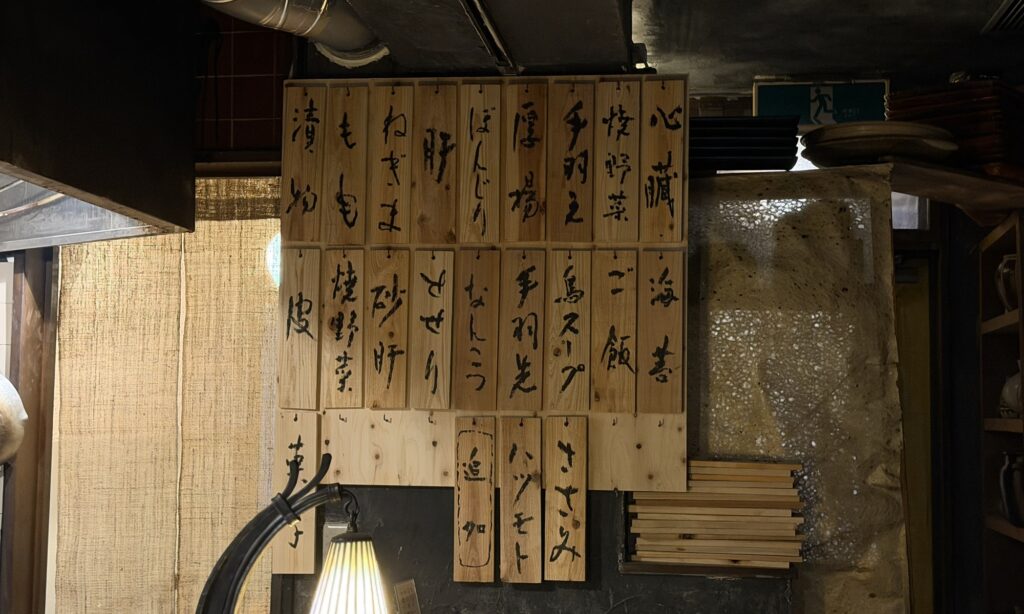 心臓
焼野菜
手羽元
厚揚
ぼんじり
肝
ねぎま
もも
漬物
海苔
ご飯
鳥スープ
手羽先
なんこつ
せせり
砂肝
焼野菜
皮
ささみ
ハツモト
追加
菓子